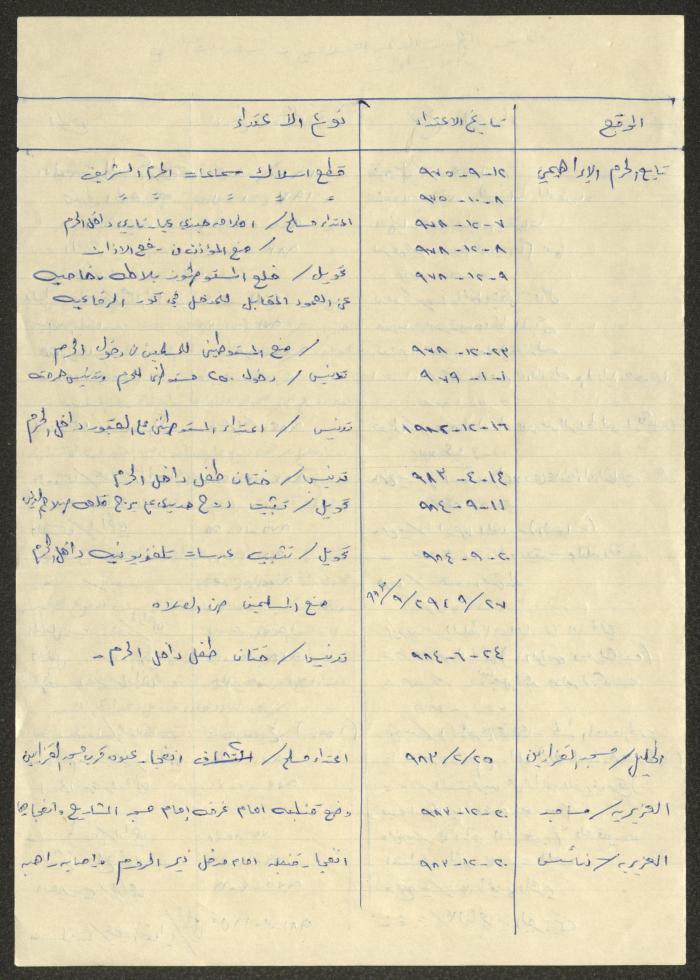 الموقع تاريخ الاعتداء نوع الاعتداء
تابع الحرم الإبراهيمي ١٢-٩-٩٧٥ قطع اسلاك سماعات الحرم الشريف
٨-١٠-٩٧٥ " " " "
٧-١٢-٩٧٨ اعتداء مسلح / اطلاق جندي عيار ناري داخل الحرم
٨-١٢-٩٧٨ / منع المؤذن من رفع الاذان
٩-١٢-٩٧٨ تحويل / خلع المستوطنون بلاطه رخاميه
عن العمود المقابل للمدخل في
٢٣-١٢-٩٧٨ / منع المستوطنين للمسلمين من دخول الحرم
١-١-٩٧٩ تدنيس / دخول ٢٥٠ مستوطن للحرم وتدنيس
١٦-١٢-١٩٨٢ تدنيس / اعتداء المستوطنين على القبور داخل الحرم
١٤-٤-٩٨٣ تدنيس / ختان طفل داخل الحرم
١١-٩-٩٨٤ تحويل / تثبيت درج حديدي على برج قلعه صلاح الدين
٢٠-٩-٩٨٤ تحويل / تثبيت عدسات تلفزيونيه داخل الحرم
منع المسلمين من الصلاه
٢٤-٦-٩٨٤ تدنيس / ختان طفل داخل الحرم -
الخليل / مسجد القزازين ٢٥/٢/٩٨٣ اعتداء مسلح / انفجار عبوه قرب مسجد القزازين
العزيريه / مساجد ٢٠-١٢-٩٨٣ وضع قنبله امام غرفه إمام مسجد وانفجارها
العزيريه / كنائس ٢٠-١٢-٩٨٣ انفجار قنبله امام مدخل دير الروم واصابه راهبه